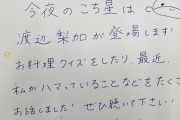 今夜のこち星は
渡辺梨加が登場します!
お料理クイズをしたり、最近
私がハマっていることなどをたくさ
お話しました!ぜひ聴いて下さい!